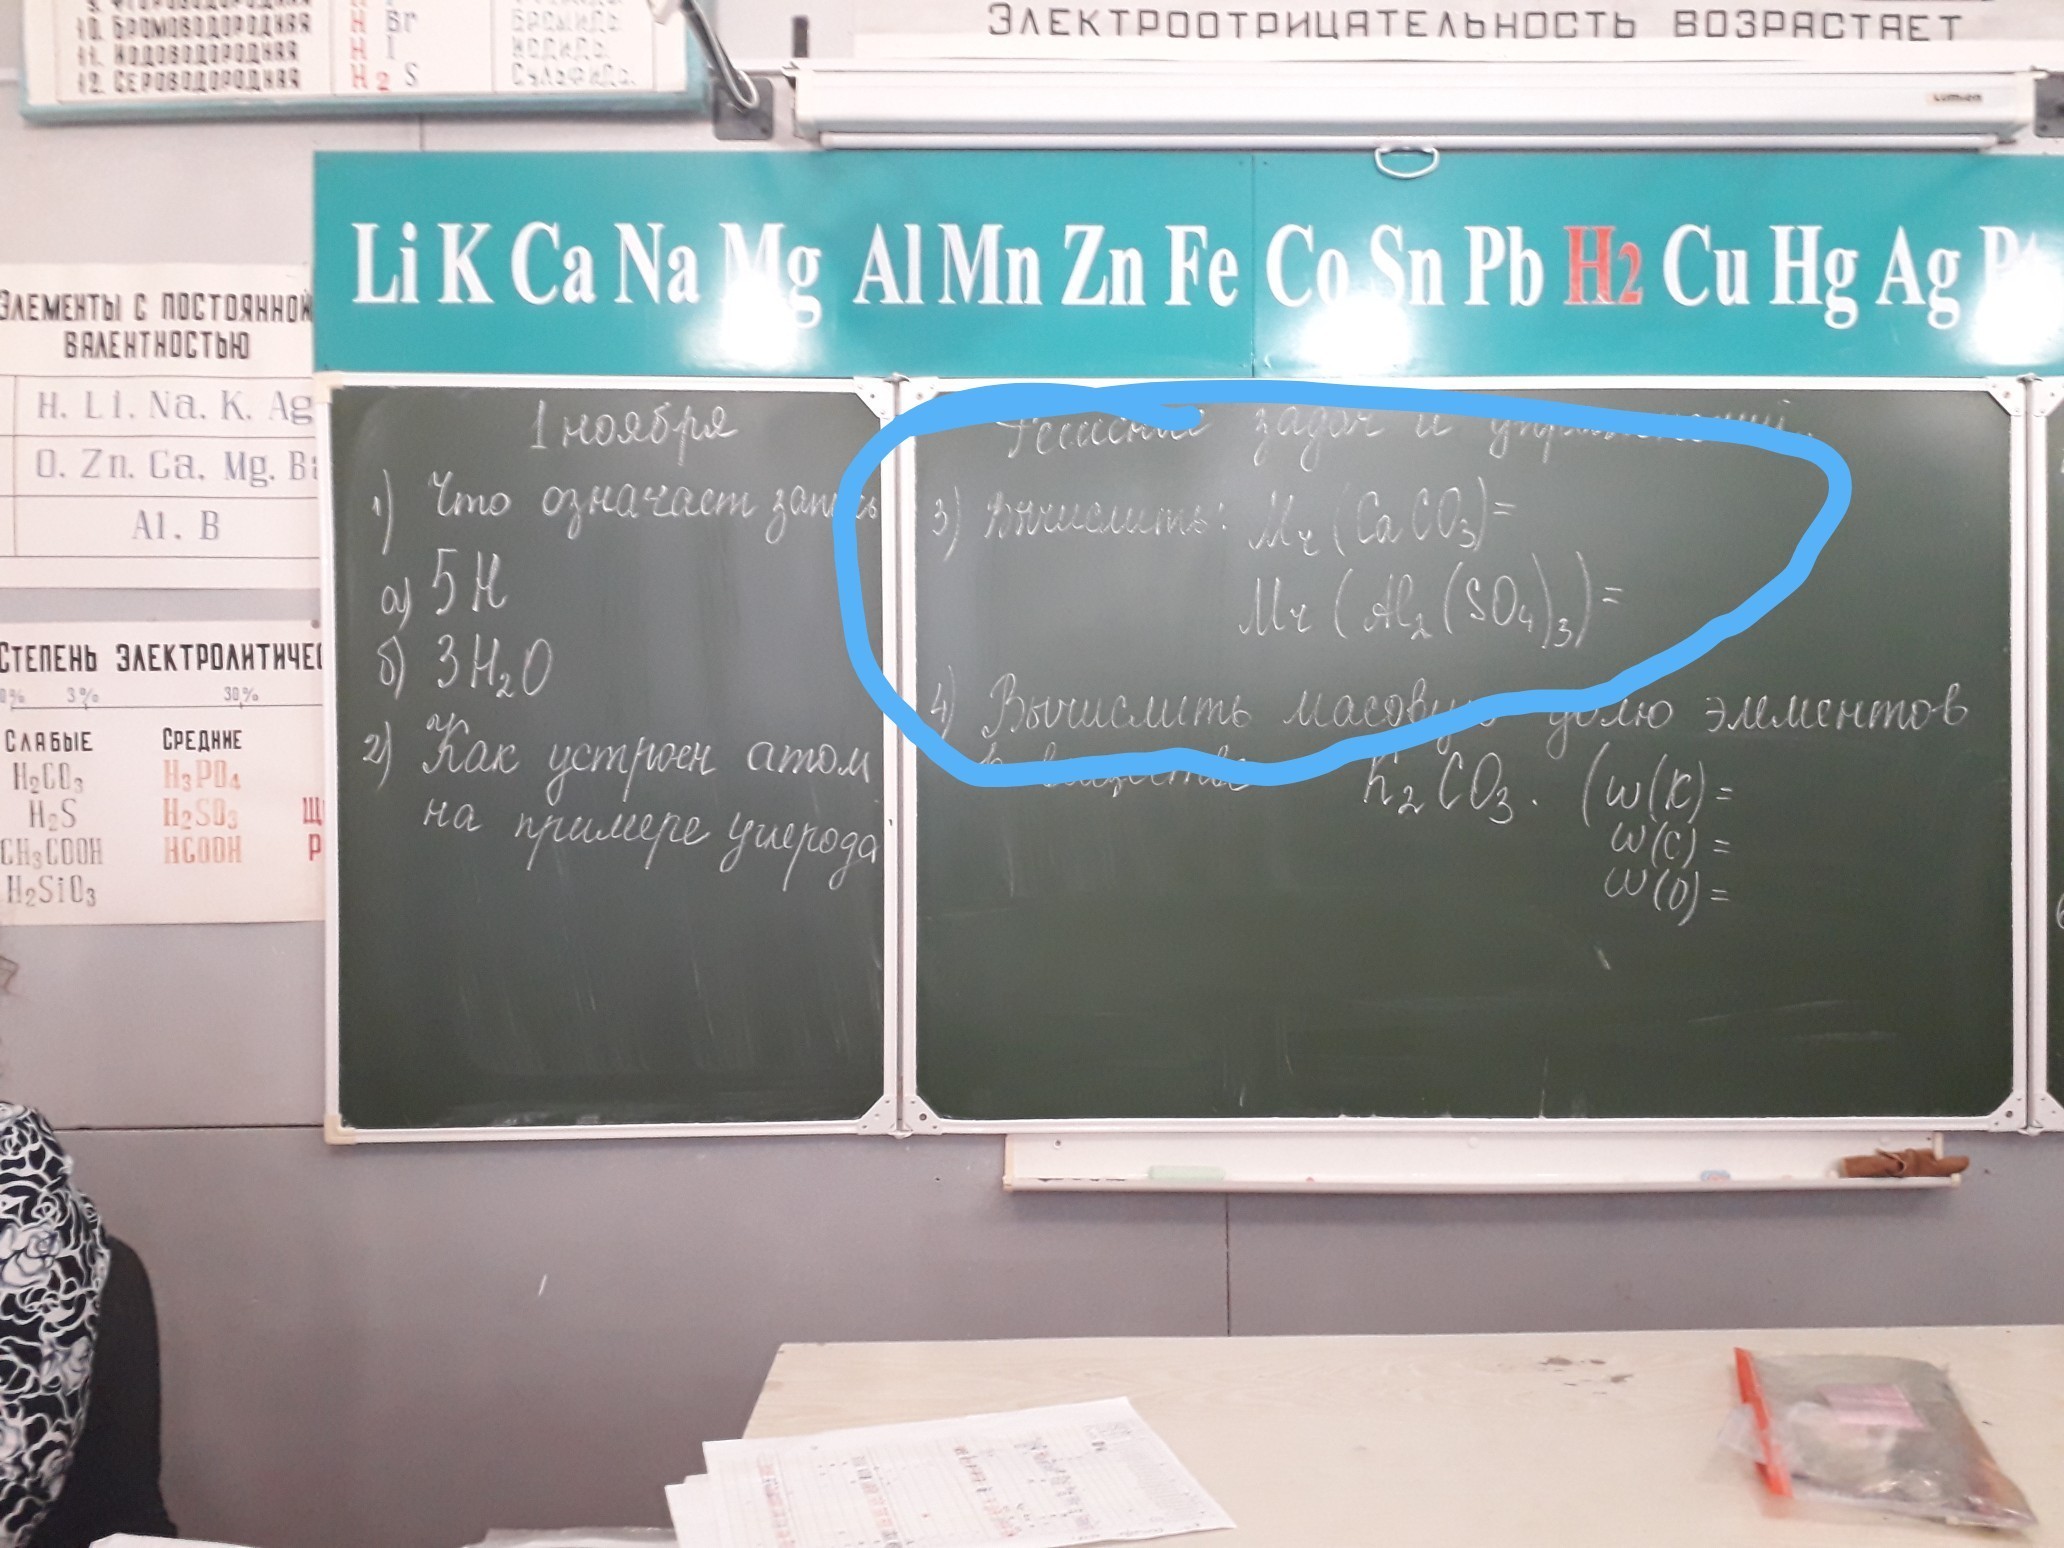 10. БРОМОВОДОРОДНАЯ H Br БРОМИДЫ
11. ИОДОВОДОРОДНАЯ H I ИОДИДЫ
12. СЕРОВОДОРОДНАЯ H2 S СУЛЬФИДЫ
ЭЛЕКТРООТРИЦАТЕЛЬНОСТЬ ВОЗРАСТАЕТ
Lumien
Li K Ca Na Mg Al Mn Zn Fe Co Sn Pb H2 Cu Hg Ag Pt
ЭЛЕМЕНТЫ С ПОСТОЯННОЙ
ВАЛЕНТНОСТЬЮ
H. Li. Na. K. Ag
O. Zn. Ca. Mg. Ba
Al. B
СТЕПЕНЬ ЭЛЕКТРОЛИТИЧЕС
3% 30%
СЛАБЫЕ СРЕДНИЕ
H2CO3 H3PO4
H2S H2SO3
CH3COOH HCOOH
H2SiO3
1 ноября
1) Что означает запись
а) 5H
б) 3H2O
2) Как устроен атом
на примере углерода
Решение задач и упражнений.
3) Вычислить: Mr (CaCO3)=
Mr (Al2(SO4)3)=
4) Вычислить масовую долю элементов
в веществе K2CO3. (w(K)=
w(C)=
w(O)=